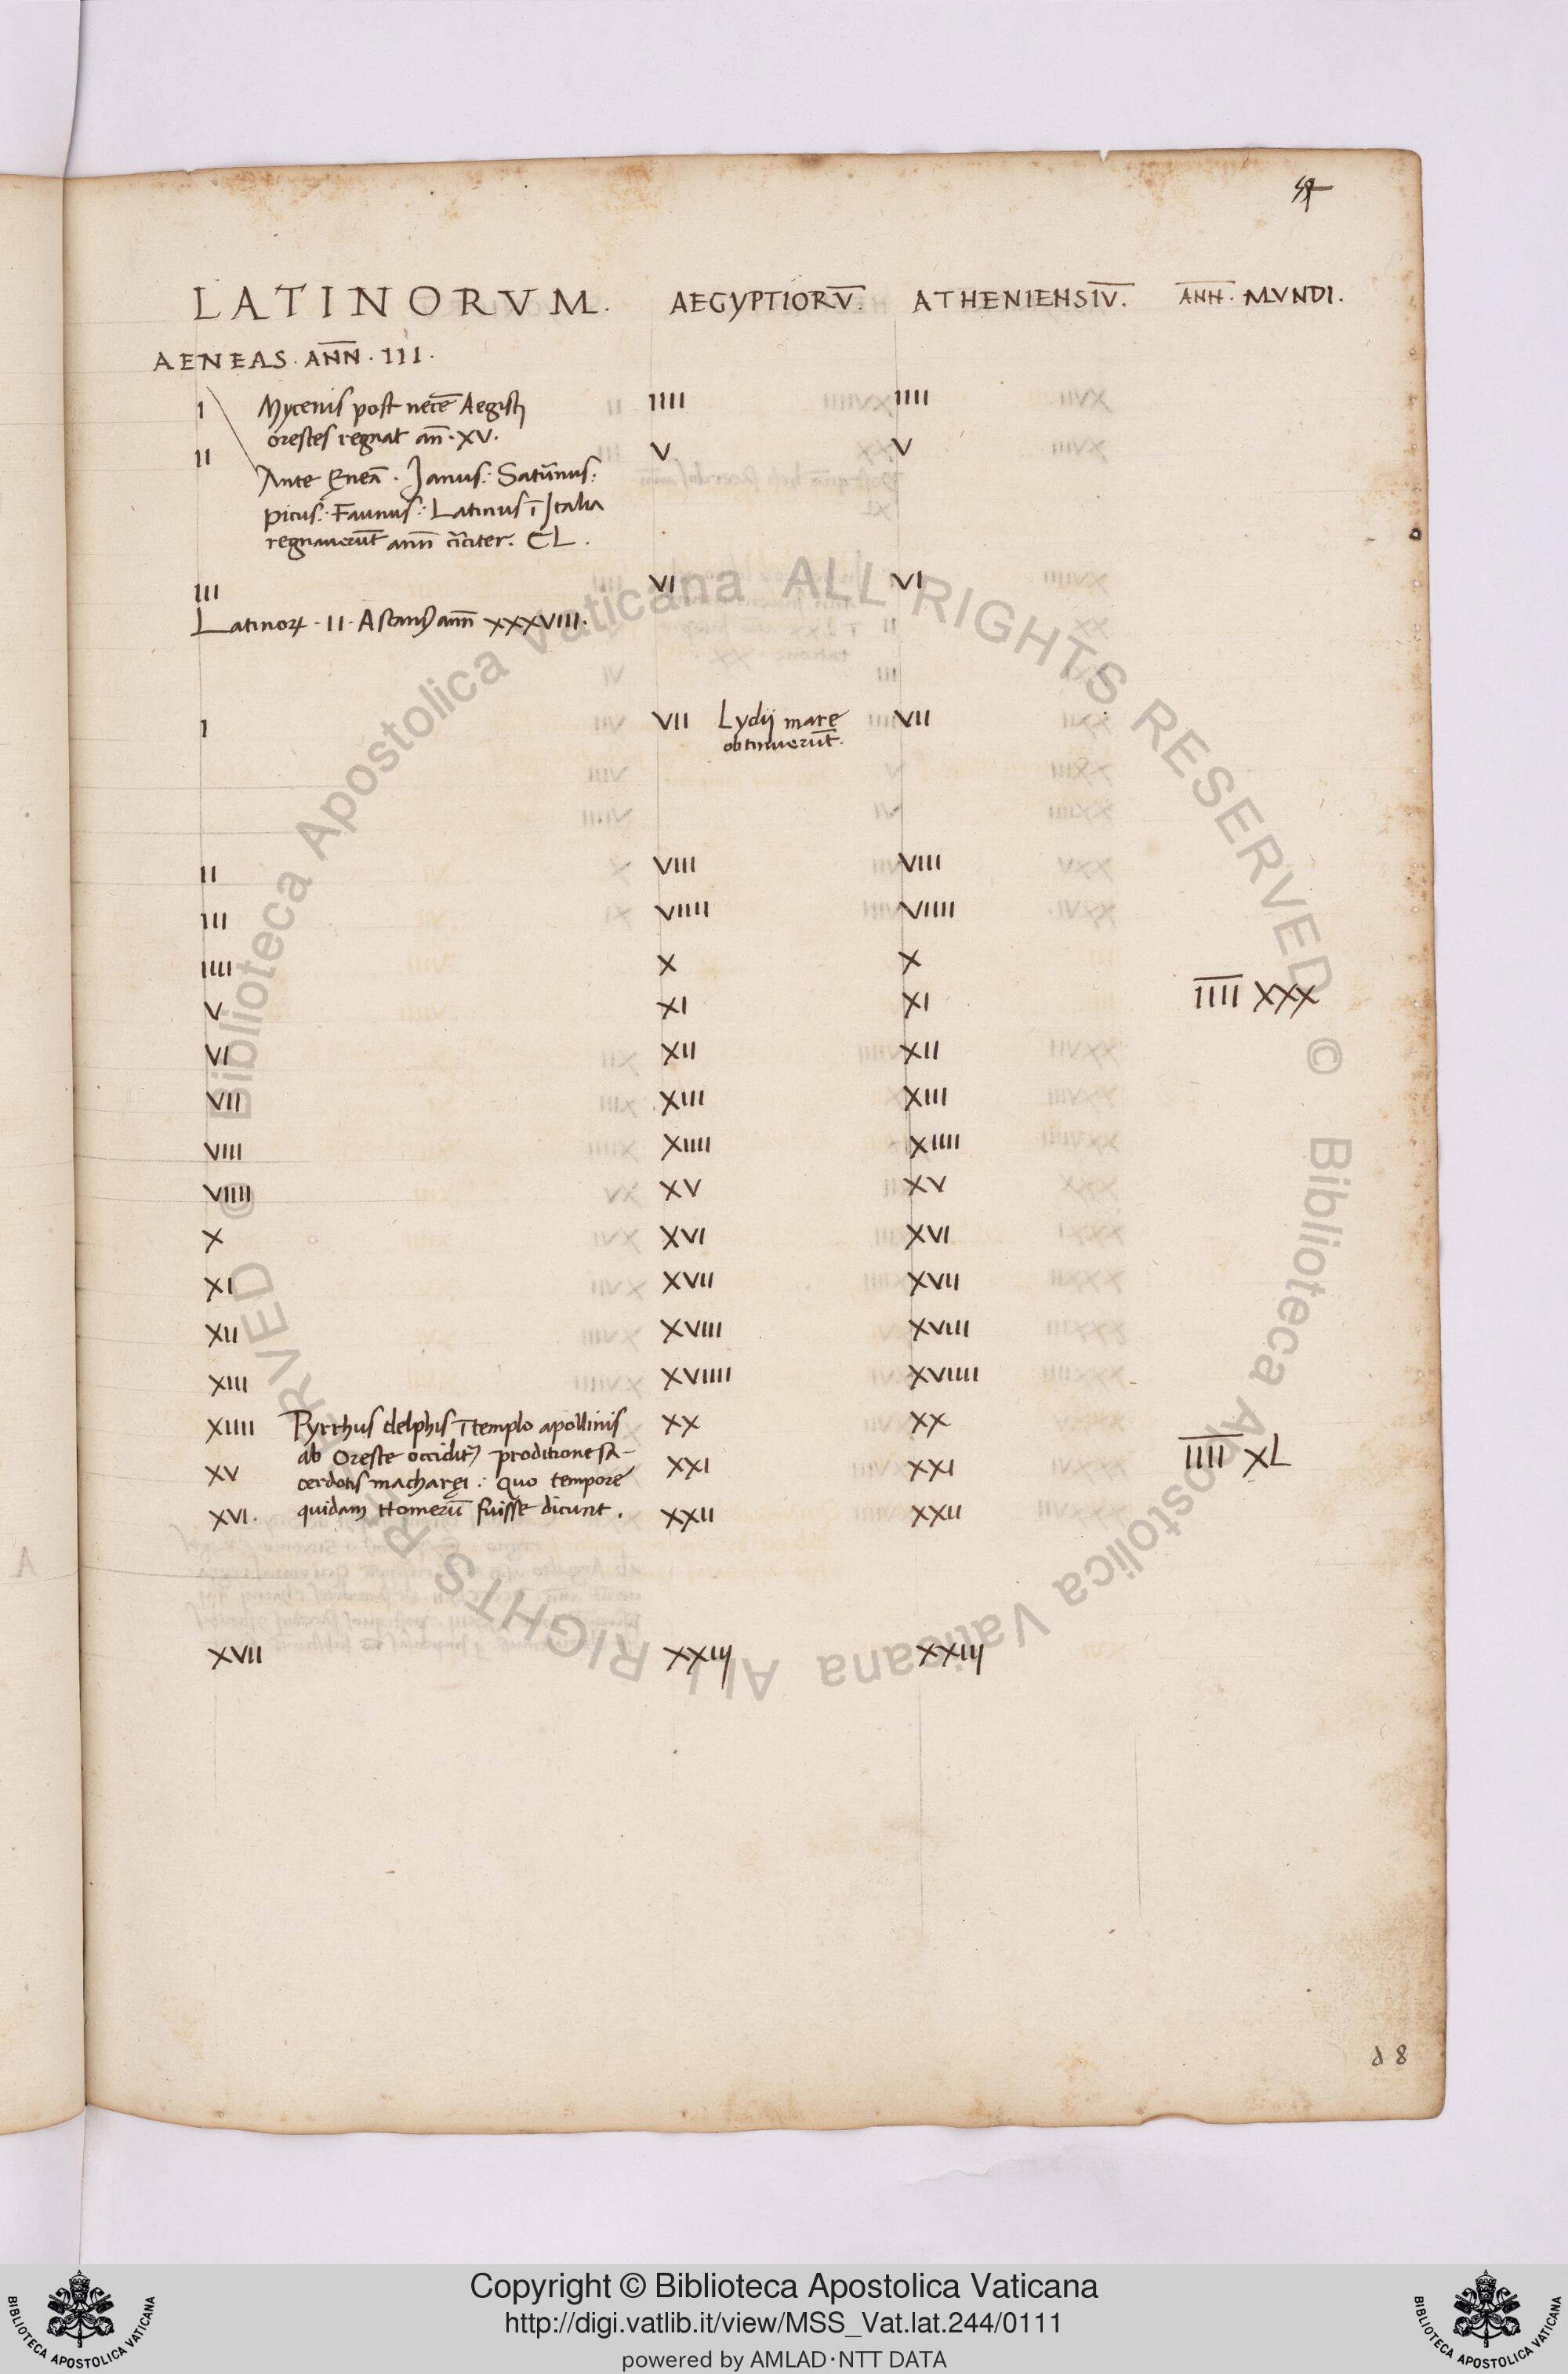 LATINORVM. AEGYPTIORV̅. ATHENIENSIV̅. AN̅N̅. MVNDI.
AENEAS. AN̅N̅. III.
I Mycenis post nece̅ Aegisti IIII IIII
orestes regnat an̅. XV.
II V V
Ante Eneā. Ianus: Saturnus:
picus: Faunus: Latinus ī Italia
regnauerūt ann̅ circiter. CL.
III VI VI
Latinoꝝ. II. Ascanij ann̅ XXXVIII.
I VII Lydij mare VII
obtinuerūt.
II VIII VIII
III VIIII VIIII
IIII X X
V XI XI I̅I̅I̅I̅ XXX
VI XII XII
VII XIII XIII
VIII XIIII XIIII
VIIII XV XV
X XVI XVI
XI XVII XVII
XII XVIII XVIII
XIII XVIIII XVIIII
XIIII Pyrrhus delphis ī templo apollinis XX XX
ab Oreste occidit᷒ proditione sa-
XV XXI XXI I̅I̅I̅I̅ XL
cerdotis macharęi: Quo tempore
XVI. quidam Homerū fuisse dicunt. XXII XXII
XVII XXIIJ XXIIJ
d 8
Biblioteca Apostolica Vaticana ALL RIGHTS RESERVED ©
Biblioteca Apostolica Vaticana ALL RIGHTS RESERVED ©
Copyright © Biblioteca Apostolica Vaticana
http://digi.vatlib.it/view/MSS_Vat.lat.244/0111
powered by AMLAD·NTT DATA
BIBLIOTECA APOSTOLICA VATICANA
BIBLIOTECA APOSTOLICA VATICANA